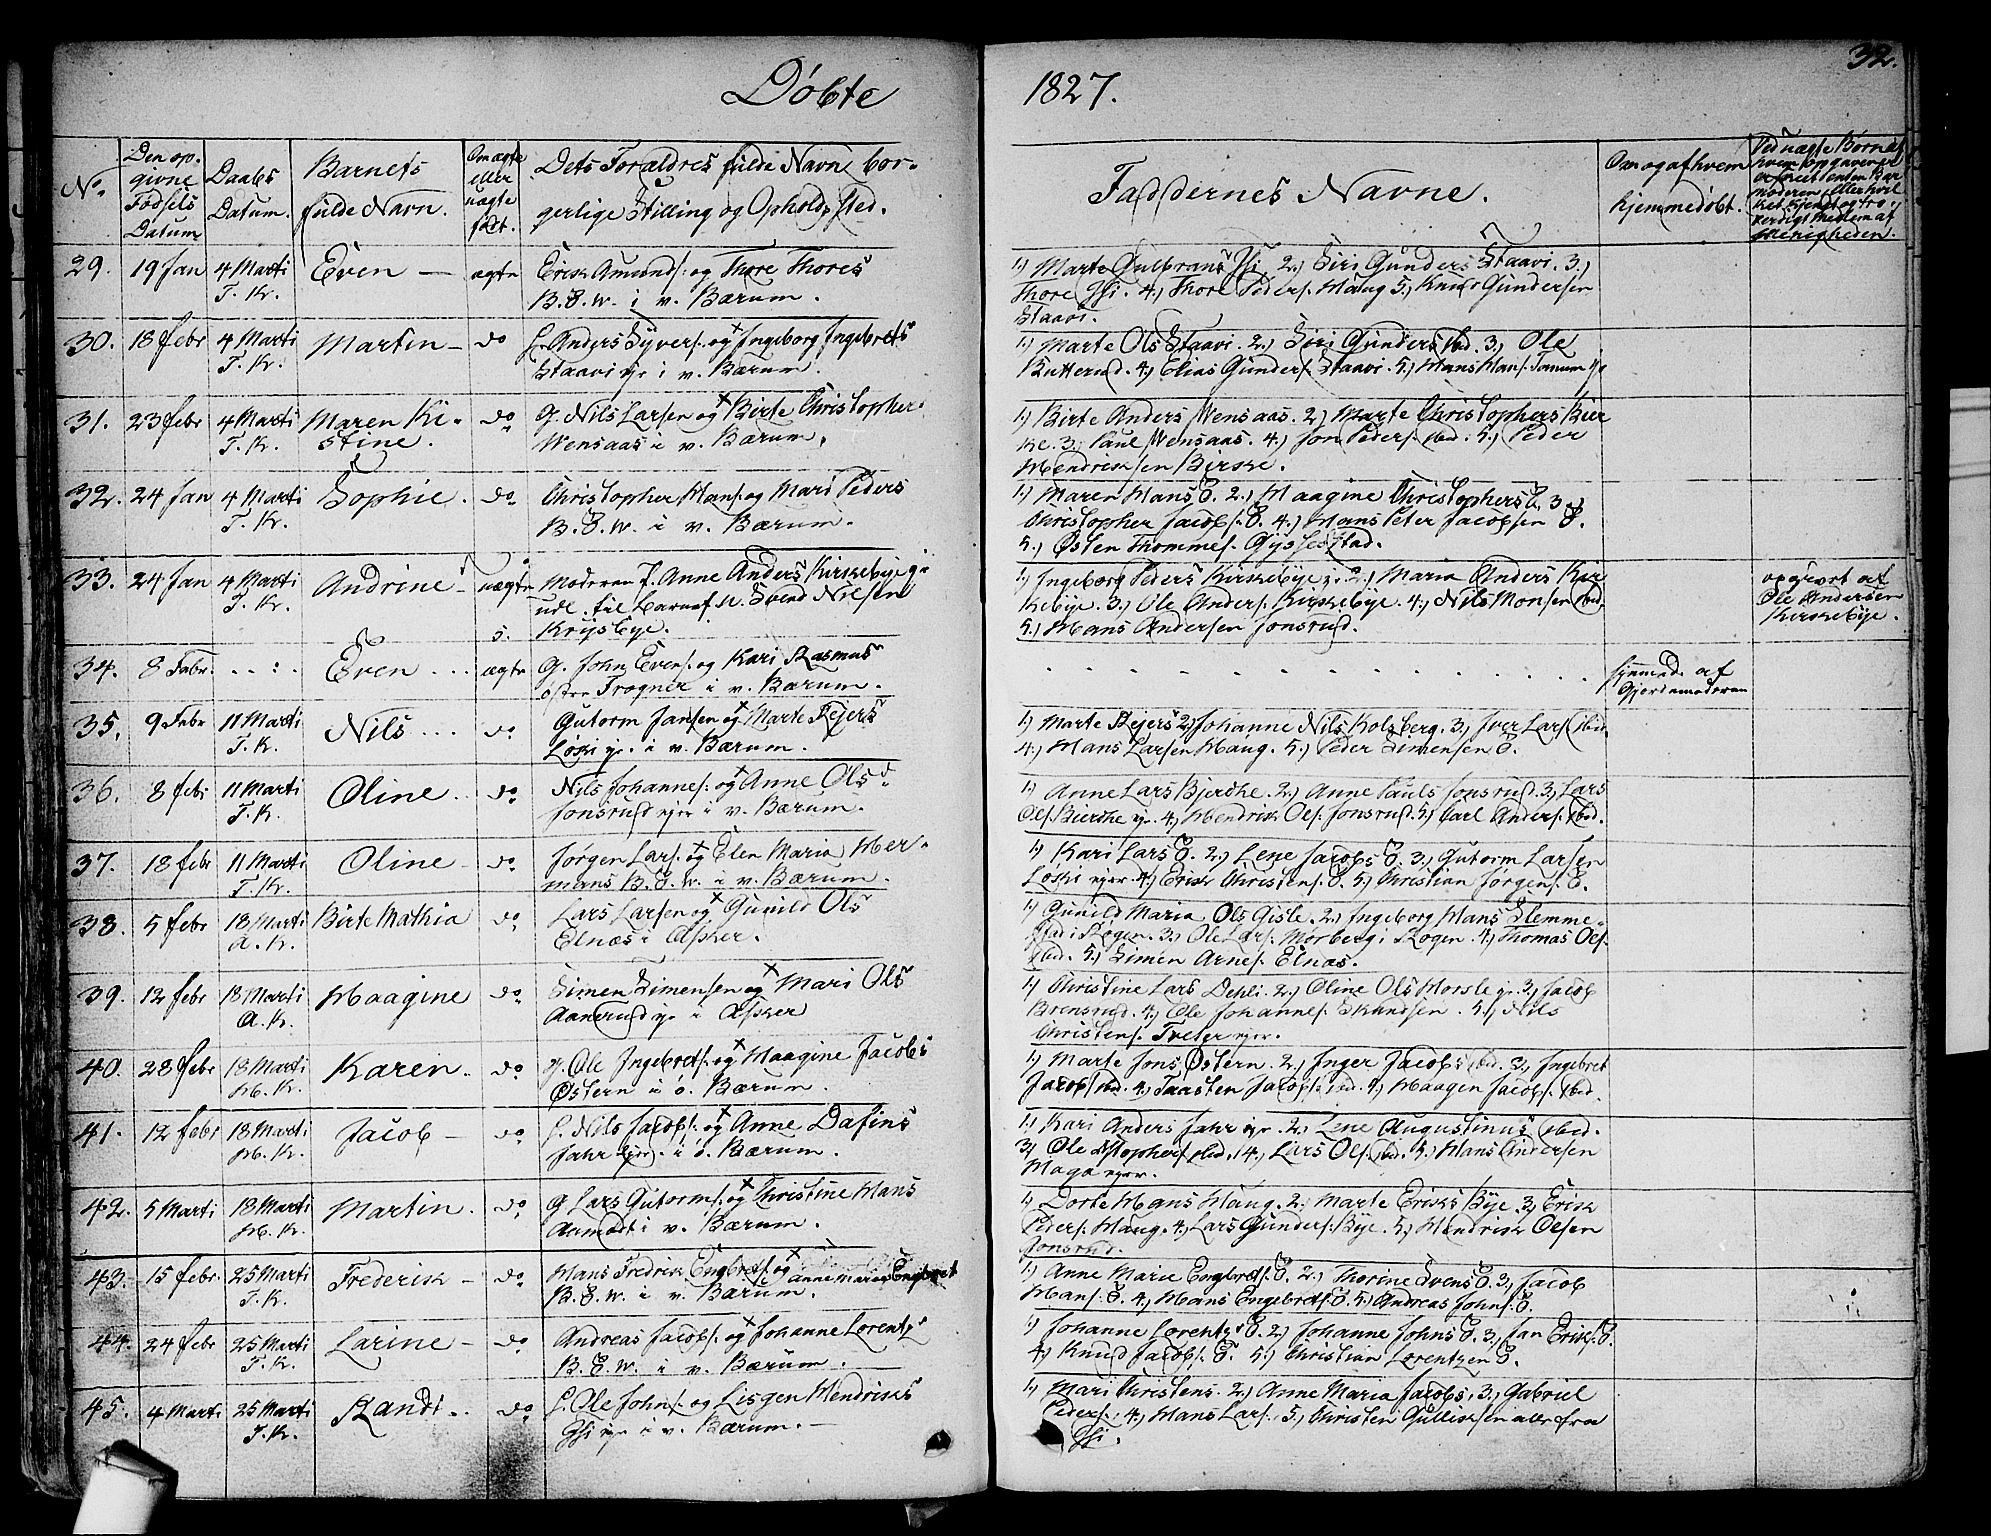 Døbte
1827.
32.
No.
Den op-
givne
Fødsels
Datum
Daabs
Datum.
Barnets
fulde Navn.
Om ægte
eller
uægte
født.
Dets Forældres fulde Navn bor-
gerlige Stilling og Opholds Sted.
Faddernes Navne.
Om og af hvem
hjemmedøbt.
Ved uægte Børn af
hvem opgaven er
moderen eller hvil
ket kjendt og tro-
værdigt Medlem af
Menigheden.
29. 19 Jan 4 Marti Even — ægte Erick Amunds. og Thore Thores
T. K. B. E. W. i v. Bærum.
1.) Marte Gulbrans 2.) Siri Gunders Staavi. 3.)
Thore 4.) Thore Peders. Haug 5.) Knud Gundersen
Staavi.
30. 18 febr 4 Marti Martin — do G. Anders Syvers. og Ingeborg Ingebrets
T. K. Staavi i v. Bærum.
1.) Marte Ols Staavi. 2.) Siri Gunders ibid. 3.) Ole
Butterud. 4.) Elias Gunders. Staavi. 5.) Hans Hans. Tanum
31. 23 febr 4 Marti Maren Ki- do G. Nils Larsen og Birte Christopher
T. K. stine. Wensaas i v. Bærum.
1.) Birte Anders Wensaas. 2.) Marte Christophers Bier
ke. 3.) Paul Wensaas. 4.) Jon Peders. ibid. 5.) Peder
Hendriksen Birke.
32. 24 Jan 4 Marti Sophie. do. Christopher Hans. og Mari Peders
T. K. B. E. W. i v. Bærum.
1.) Maren Hans E. 2.) Haagine Christophers E. 3.)
Christopher Jacobs. E. 4.) Hans Peter Jacobsen E.
5.) Østen Thommes.
33. 24 Jan 4 Marti Andrine — uægte Moderen P. Anne Anders Kirkebye
T. K. udl. til Barnef. u. Svend Nilsen
5. Krysbye.
1.) Ingeborg Peders Kirkebye 2.) Maria Anders Kir
kebye. 3.) Ole Anders. Kirkebye. 4.) Nils Monsen ibid.
5.) Hans Andersen Jonsrud.
opgivet af
Ole Andersen
Kirkebye.
34. 8 Febr. . . : . Even . . . ægte G. John Evens. og Kari Rasmus
østre Trogner i v. Bærum.
hjemmed. af
Gjordemoderen
35. 9 Febr 11 Marti Nils . . . do Gutorm Jansen og Marte Rejers
T. K. Løski i v. Bærum.
1.) Marte Rejers 2.) Johanne Nils Kolsberg. 3.) Iver Lars. ibid.
4.) Hans Larsen Haug. 5.) Peder Simensen E.
36. 8 febr 11 Marti Oline . . do. Nils Johannes. og Anne Ols
T. K. Jonsrud ejer i v. Bærum.
1.) Anne Lars Bjerche. 2.) Anne Pauls Jonsrud. 3.) Lars
Ols. Bierche 4.) Hendrik Ols. Jonsrud. 5.) Carl Anders. ibid.
37. 18 febr 11 Marti Oline — do Jørgen Lars. og Elen Maria Her-
T. K. mans B. E. W. i v. Bærum.
1.) Kari Lars E. 2.) Lene Jacobs E. 3.) Gutorm Larsen
Løski ejer. 4.) Erik Christens. E. 5.) Christian Jørgens. E.
38. 5 febr 18 Marti Birte Mathia do Lars Larsen og Gunild Ols
A. K. Elnæs i Asker.
1.) Gunild Maria Ols Gisle. 2.) Ingeborg Hans Slemme-
stad i Røgen. 3.) Ole Lars. Morberg i Røgen. 4.) Thomas Ols.
ibid. 5.) Simen Arnes. Elnæs.
39. 12 febr 18 Marti Haagine do. Simen Simensen og Mari Ols
A. K. Aanerud i Asker
1.) Christine Lars Dehli. 2.) Oline Ols Horsle 3.) Jacob
Brensrud. 4.) Ole Johannes. 5.) Nils
Christens. Tveter ejer.
40. 28 febr 18 Marti Karen. do. G. Ole Ingebrets. og Haagine Jacobs
H. K. Østern i ø. Bærum.
1.) Marte Jons Østern. 2.) Inger Jacobs ibid. 3.) Ingebret
Jacobs. ibid. 4.) Taasten Jacobs. ibid. 5.) Haagen Jacobs. ibid.
41. 12 febr 18 Marti Jacob — do. G. Nils Jacobs. og Anne Dafins
H. K. Jahr ejer. i ø. Bærum.
1.) Kari Anders Jahr 2.) Lene Augustinus ibid.
3.) Ole ibid. 4.) Lars Ols. ibid. 5.) Hans Andersen
Haga ejer.
42. 5 Marti 18 Marti Martin. do. G Lars Gutorms. og Christine Hans
H. K. Aamodt i v. Bærum.
1.) Dorte Hans Haug. 2.) Marte Eriks Bye. 3.) Erik
Peders. Haug. 4.) Lars Gunders. Bye. 5.) Hendrik Olsen
Jonsrud.
43. 15 febr. 25 Marti Frederik — do. Hans Fredrik Engbrets. og anne maria Engbret
T. K. B. E. W. i v. Bærum.
1.) Anne Marie Engbrets. E. 2.) Thorine Svens E. 3.) Jacob
Hans. E. 4.) Hans Engebrets. E. 5.) Andreas Johns. E.
44. 24 febr 25 Marti Larine — do. Andreas Jacobs. og Johanne Lorentz
T. K. B. E. W. i v. Bærum.
1.) Johanne Lorentz E. 2.) Johanne Johns E. 3.) Jan Eriks. E.
4.) Knud Jacobs. E. 5.) Christian Lorentzen E.
45. 4 Marti 25 Marti Randi . . do. G. Ole Johns. og Lisgen Hendriks
T. K. i v. Bærum. —
1.) Mari Christens. 2.) Anne Maria Jacobs. 3.) Gabriel
Peders. 4.) Hans Lars. 5.) Christen Gulliksen alle fra